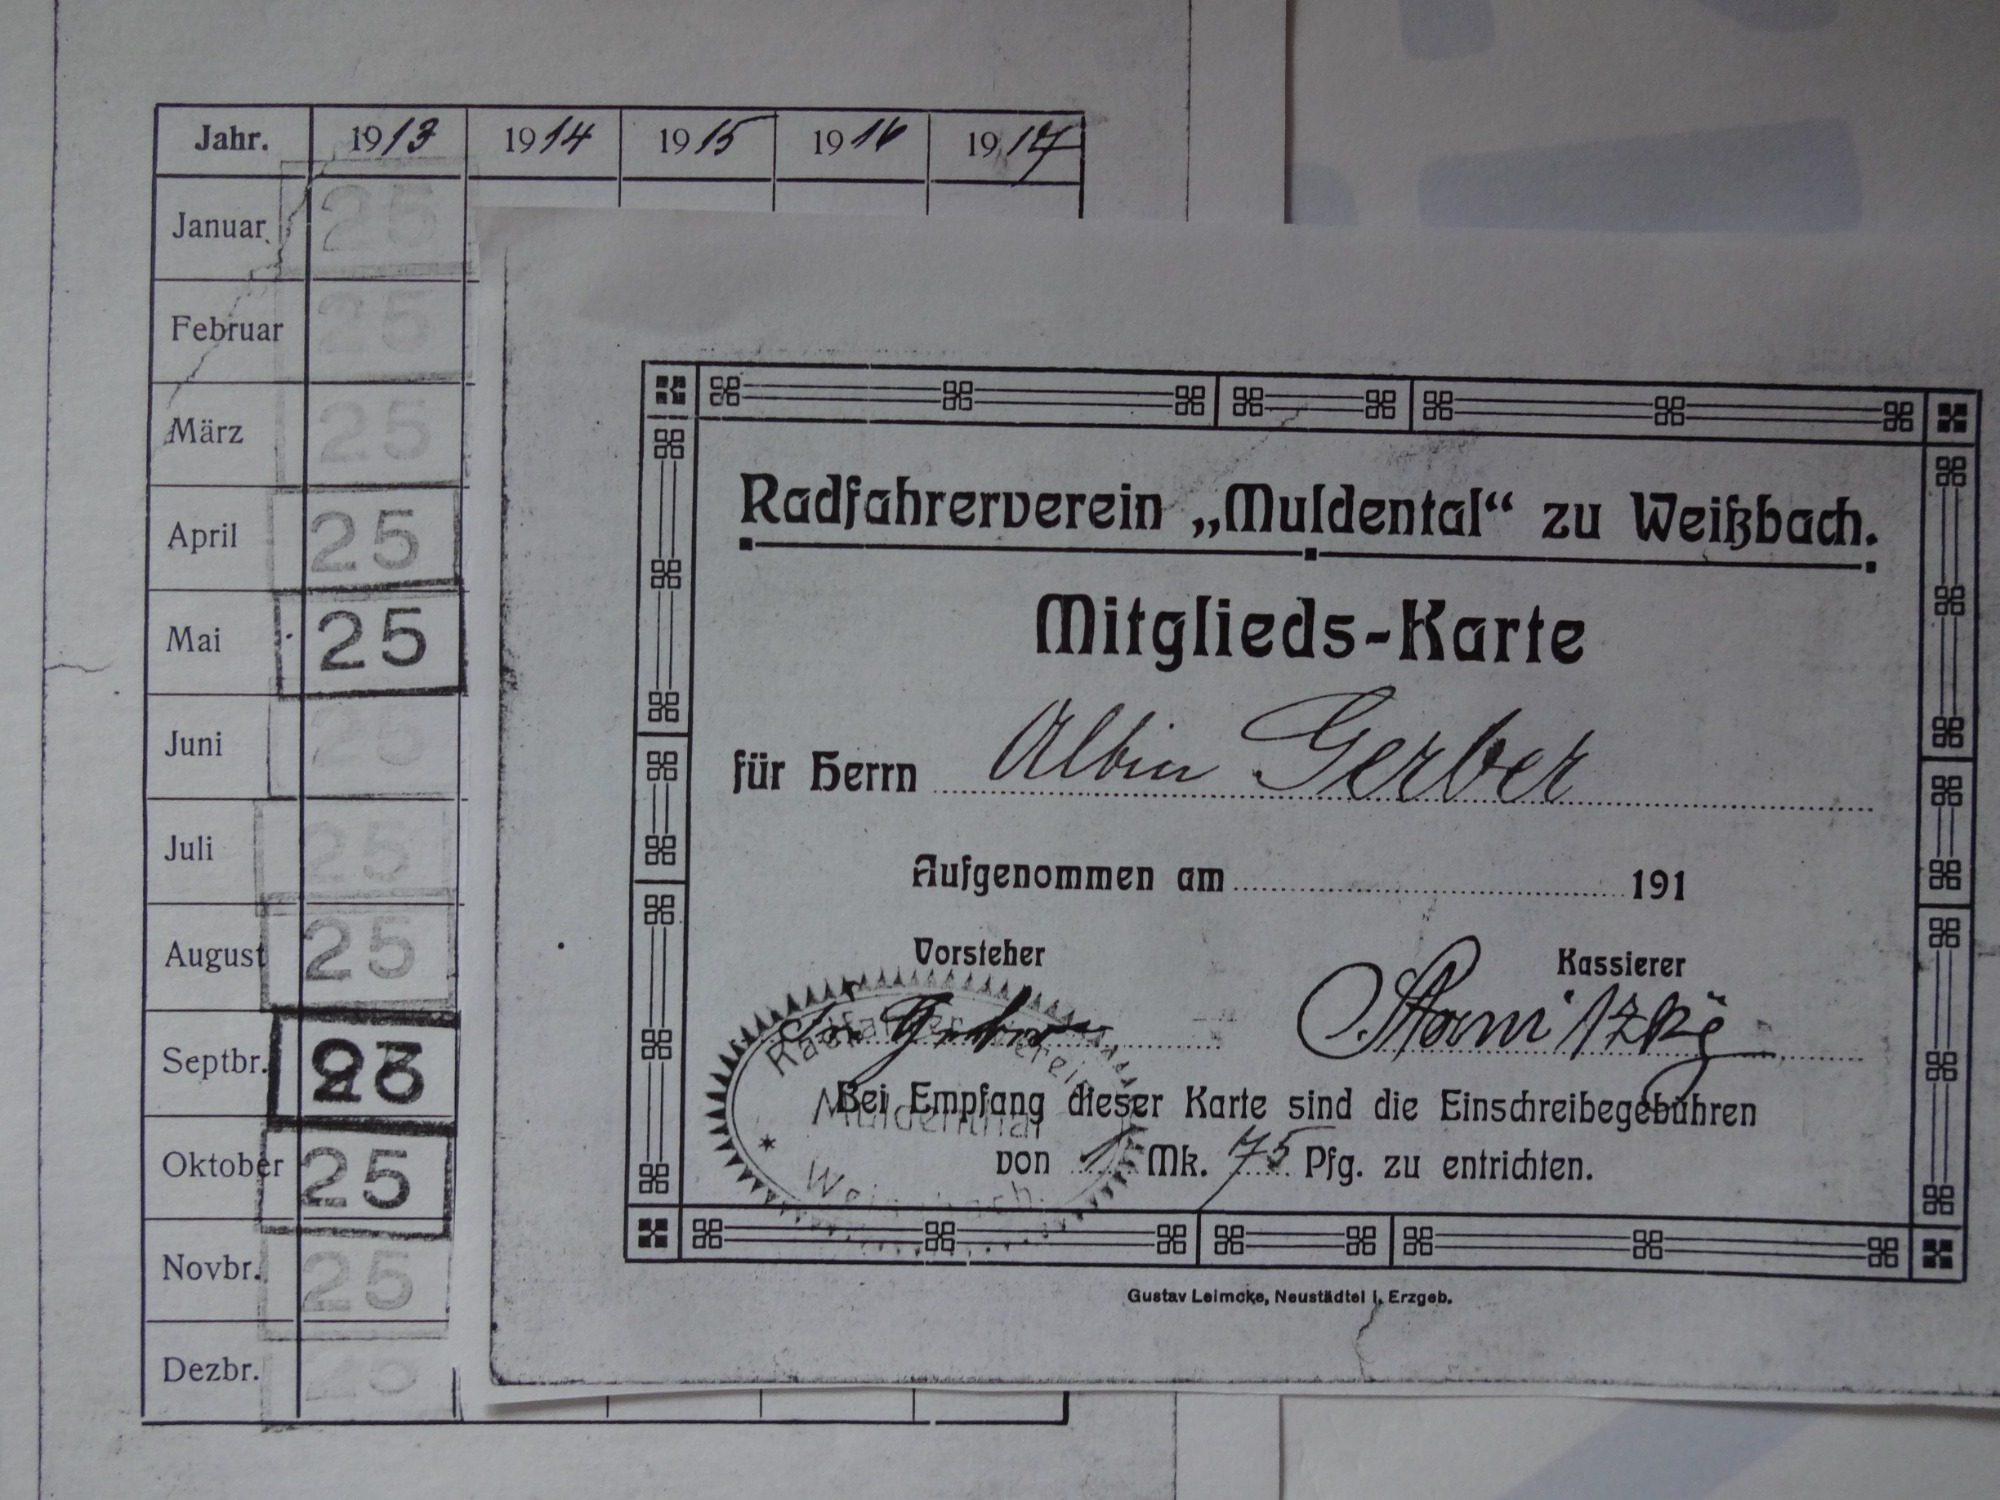 Jahr. 1913 1914 1915 1916 1917
Januar 25
Februar 25
März 25
April 25
Mai 25
Juni 25
Juli 25
August 25
Septbr.
Oktober 25
Novbr. 25
Dezbr. 25
Radfahrerverein „Muldental“ zu Weißbach.
Mitglieds-Karte
für Herrn Albin Gerber
Aufgenommen am 191
Vorsteher Kassierer
Radfahrer Verein
Muldenthal
Bei Empfang dieser Karte sind die Einschreibegebühren
von 1 Mk. 75 Pfg. zu entrichten.
Gustav Leimcke, Neustädtel i. Erzgeb.